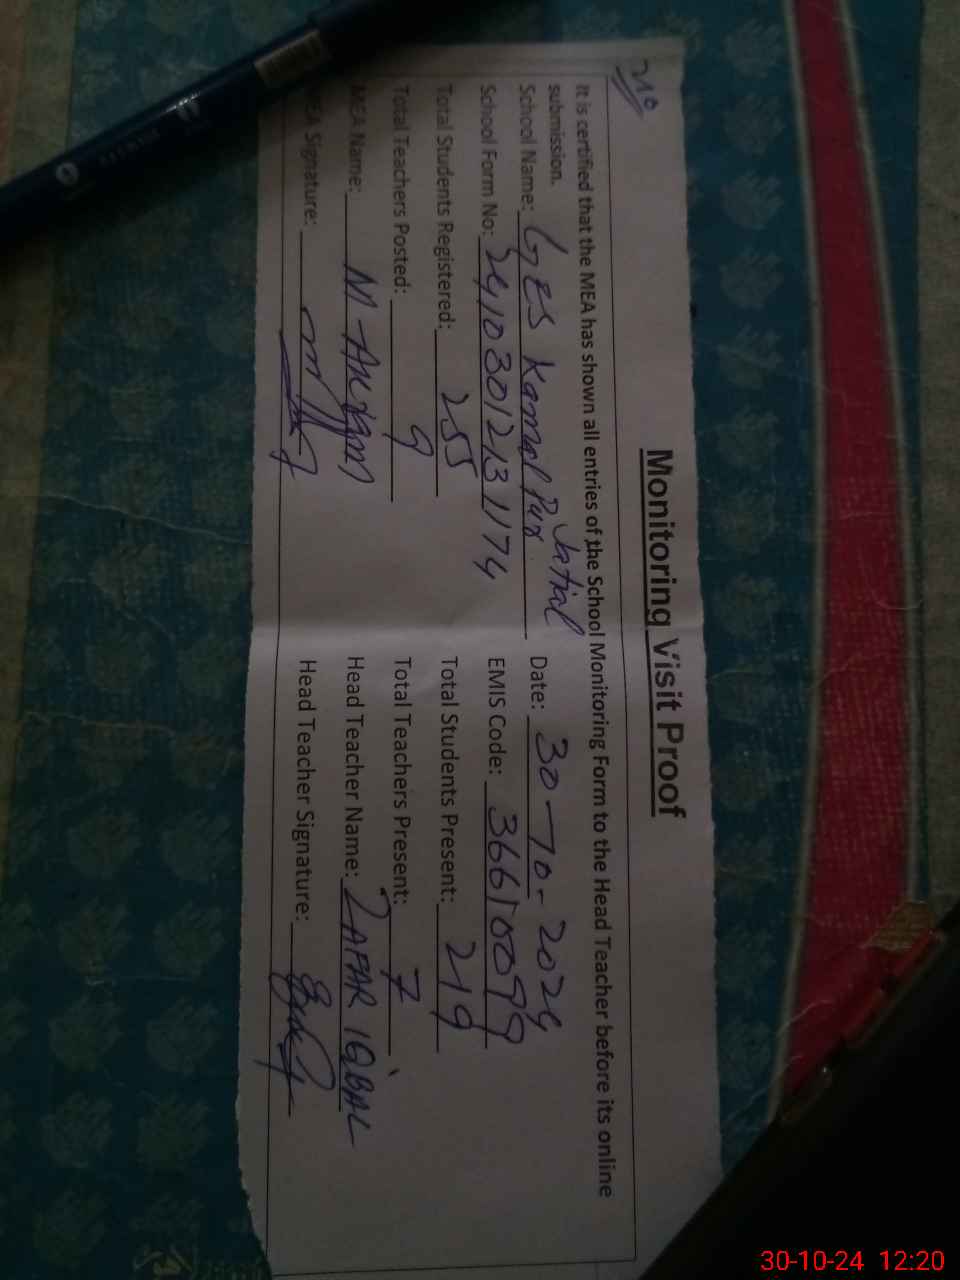 Monitoring Visit Proof
It is certified that the MEA has shown all entries of the School Monitoring Form to the Head Teacher before its online
submission.
School Name: GES Kamal Pur Jatial Date: 30-10-2024
School Form No: 24103012131174 EMIS Code: 36610099
Total Students Registered: 255 Total Students Present: 219
Total Teachers Posted: 9 Total Teachers Present: 7
MEA Name: M. Head Teacher Name: ZAFAR IQBAL
MEA Signature: Head Teacher Signature:
30-10-24 12:20